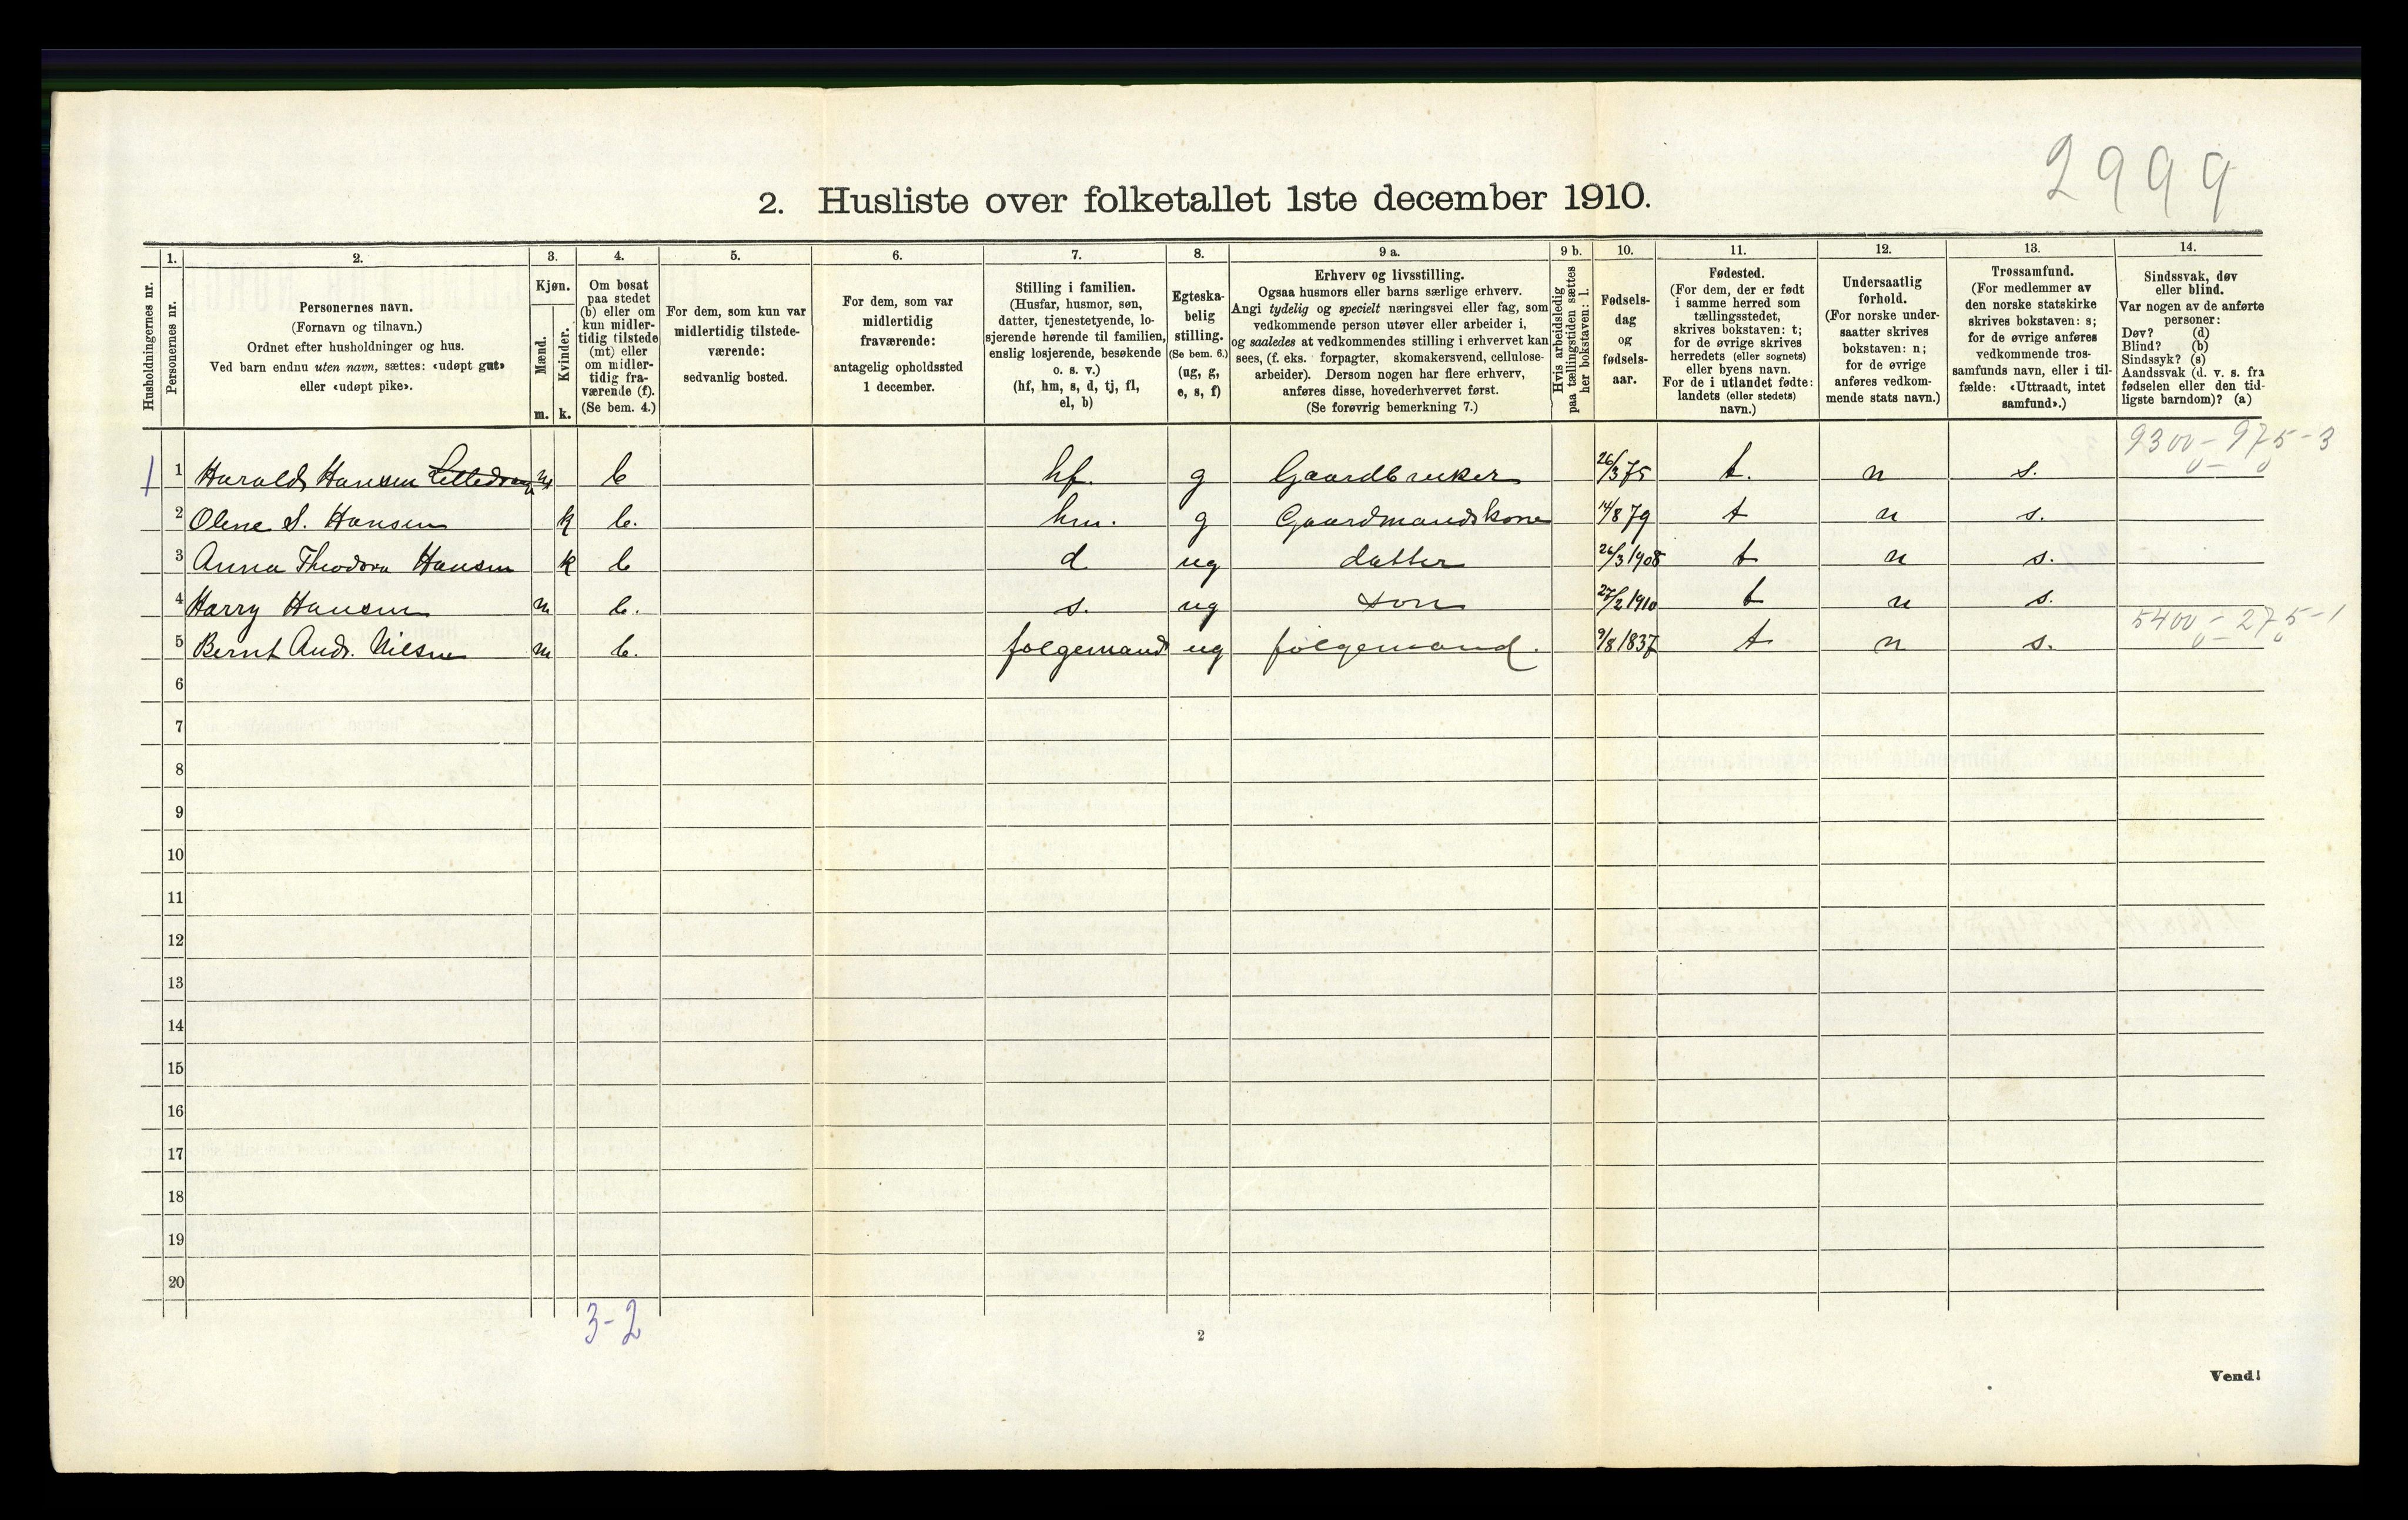 2999
2. Husliste over folketallet 1ste december 1910.
Husholdningernes nr.
1. Personernes nr.
2. Personernes navn.
(Fornavn og tilnavn.)
Ordnet efter husholdninger og hus.
Ved barn endnu uten navn, sættes: «udøpt gut»
eller «udøpt pike».
3. Kjøn.
Mænd. m.
Kvinder. k.
4. Om bosat
paa stedet
(b) eller om
kun midler-
tidig tilstede
(mt) eller
om midler-
tidig fra-
værende (f).
(Se bem. 4.)
5. For dem, som kun var
midlertidig tilstede-
værende:
sedvanlig bosted.
6. For dem, som var
midlertidig
fraværende:
antagelig opholdssted
1 december.
7. Stilling i familien.
(Husfar, husmor, søn,
datter, tjenestetyende, lo-
sjerende hørende til familien,
enslig losjerende, besøkende
o. s. v.)
(hf, hm, s, d, tj, fl,
el, b)
8. Egteska-
belig
stilling.
(Se bem. 6.)
(ug, g,
e, s, f)
9 a. Erhverv og livsstilling.
Ogsaa husmors eller barns særlige erhverv.
Angi tydelig og specielt næringsvei eller fag, som
vedkommende person utøver eller arbeider i,
og saaledes at vedkommendes stilling i erhvervet kan
sees, (f. eks. forpagter, skomakersvend, cellulose-
arbeider). Dersom nogen har flere erhverv,
anføres disse, hovederhvervet først.
(Se forøvrig bemerkning 7.)
9 b. Hvis arbeidsledig
paa tællingstiden sættes
her bokstaven: l.
10. Fødsels-
dag
og
fødsels-
aar.
11. Fødested.
(For dem, der er født
i samme herred som
tællingsstedet,
skrives bokstaven: t;
for de øvrige skrives
herredets (eller sognets)
eller byens navn.
For de i utlandet fødte:
landets (eller stedets)
navn.)
12. Undersaatlig
forhold.
(For norske under-
saatter skrives
bokstaven: n;
for de øvrige
anføres vedkom-
mende stats navn.)
13. Trossamfund.
(For medlemmer av
den norske statskirke
skrives bokstaven: s;
for de øvrige anføres
vedkommende tros-
samfunds navn, eller i til-
fælde: «Uttraadt, intet
samfund».)
14. Sindssvak, døv
eller blind.
Var nogen av de anførte
personer:
Døv? (d)
Blind? (b)
Sindssyk? (s)
Aandssvak (d. v. s. fra
fødselen eller den tid-
ligste barndom)? (a)
9300 - 975 - 3
0 - 0
1 1 Harald Hansen m b hf. g Gaardbruker 26/3 75 t. n s.
2 Olene S. Hansen k b. hm. g Gaardmandskone 14/8 79 t n s.
3 Anna Theodora Hansen k b d ug datter 26/3 1908 t n s.
4 Harry Hansen m b. s. ug son 27/2 1910 t n s.
5400 - 275 - 1
0 - 0
5 Bernt Andr. Nilsen m b. folgemand ug folgemand. 9/8 1837 t n s.
6
7
8
9
10
11
12
13
14
15
16
17
18
19
20
3-2
2
Vend!